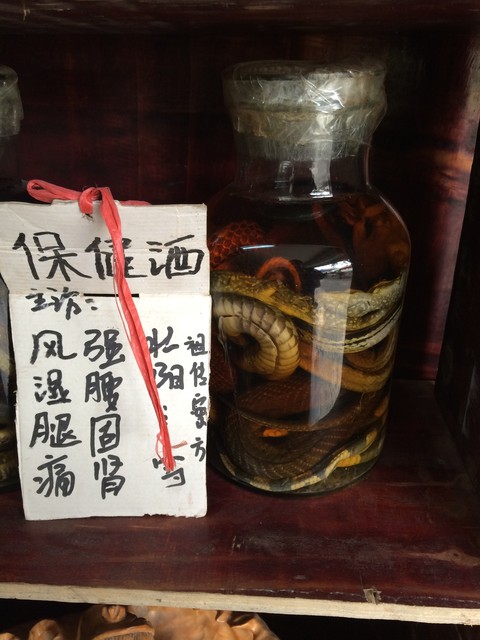 保健酒
主访:
风湿腿痛
强腰固肾
壮阳:
等
祖传密方